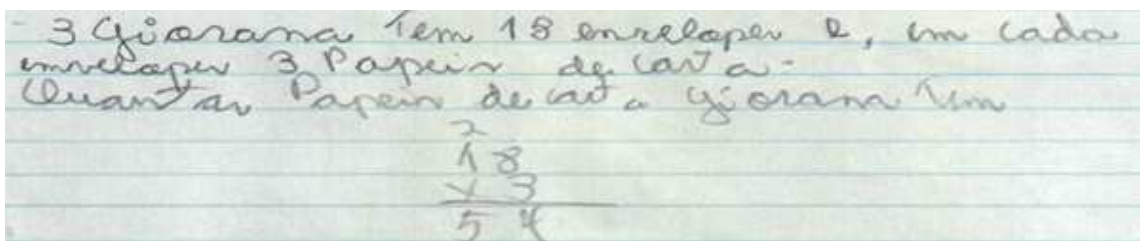 3 Giorana Tem 18 envelopes e, em cada
envelopes 3 Papeis de carta.
Quantas Papeis de carta Giorana tem
2
18
x 3
54